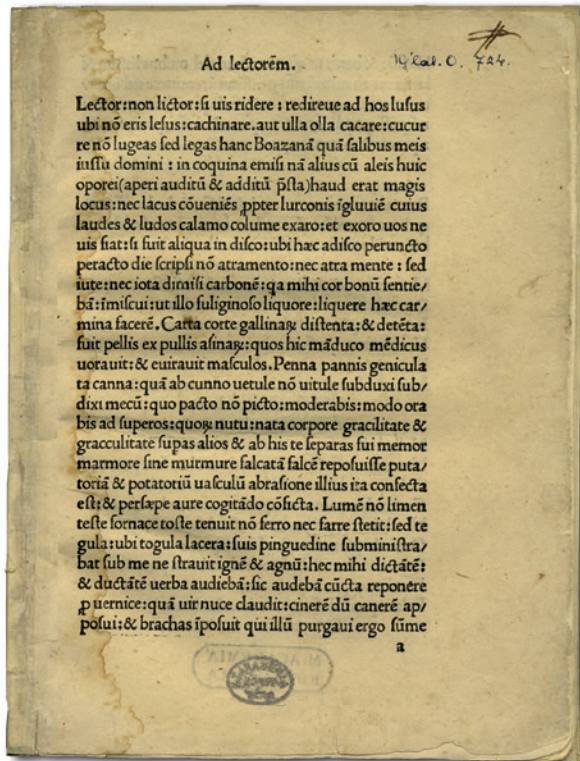 Ad lectorēm.
Lector:non lictor:si uis ridere : redireue ad hos lusus
ubi nō eris lesus:cachinare.aut ulla olla cacare:cucur
re nō lugeas sed legas hanc Boazanā quā salibus meis
iussu domini : in coquina emisi nā alius cū aleis huic
oporei(aperi auditū & additū p̄sta)haud erat magis
locus:nec lacus cōueniēs ꝓpter lurconis īgluuiē cuius
laudes & ludos calamo colume exaro:et exoro uos ne
uis fiat:si fuit aliqua in disco:ubi hæc adisco peruncto
peracto die scripsi nō atramento:nec atra mente : sed
iute:nec iota dimisi carbonē:qa mihi cor bonū sentie/
bā:īmiscui:ut illo fuliginoso liquore:liquere hæc car/
mina facerē.Carta corte gallinaꝝ distenta:& detēta:
fuit pellis ex pullis asinaꝝ:quos hic māduco mēdicus
uorauit:& euirauit masculos.Penna pannis genicula
ta canna:quā ab cunno uetule nō uitule subduxi sub/
dixi mecū:quo pacto nō picto:moderabis:modo ora
bis ad superos:quoꝝ nutu:nata corpore gracilitate &
gracculitate supas alios & ab his te separas fui memor
marmore sine murmure falcatā falcē reposuisse puta/
toriā & potatoriū uasculū abrasione illius ita confecta
est:& persæpe aure cogitādo cōficta. Lumē nō limen
teste fornace toste tenuit nō ferro nec farre stetit:sed te
gula:ubi togula lacera:suis pinguedine subministra/
bat sub me ne strauit ignē & agnū:hec mihi dictātē:
& ductātē uerba audiebā:sic audebā cūcta reponere
ꝓ uernice:quā uir nuce claudit:cinerē dū canerē ap/
posui:& brachas īposuit qui illū purgaui ergo sūme
a